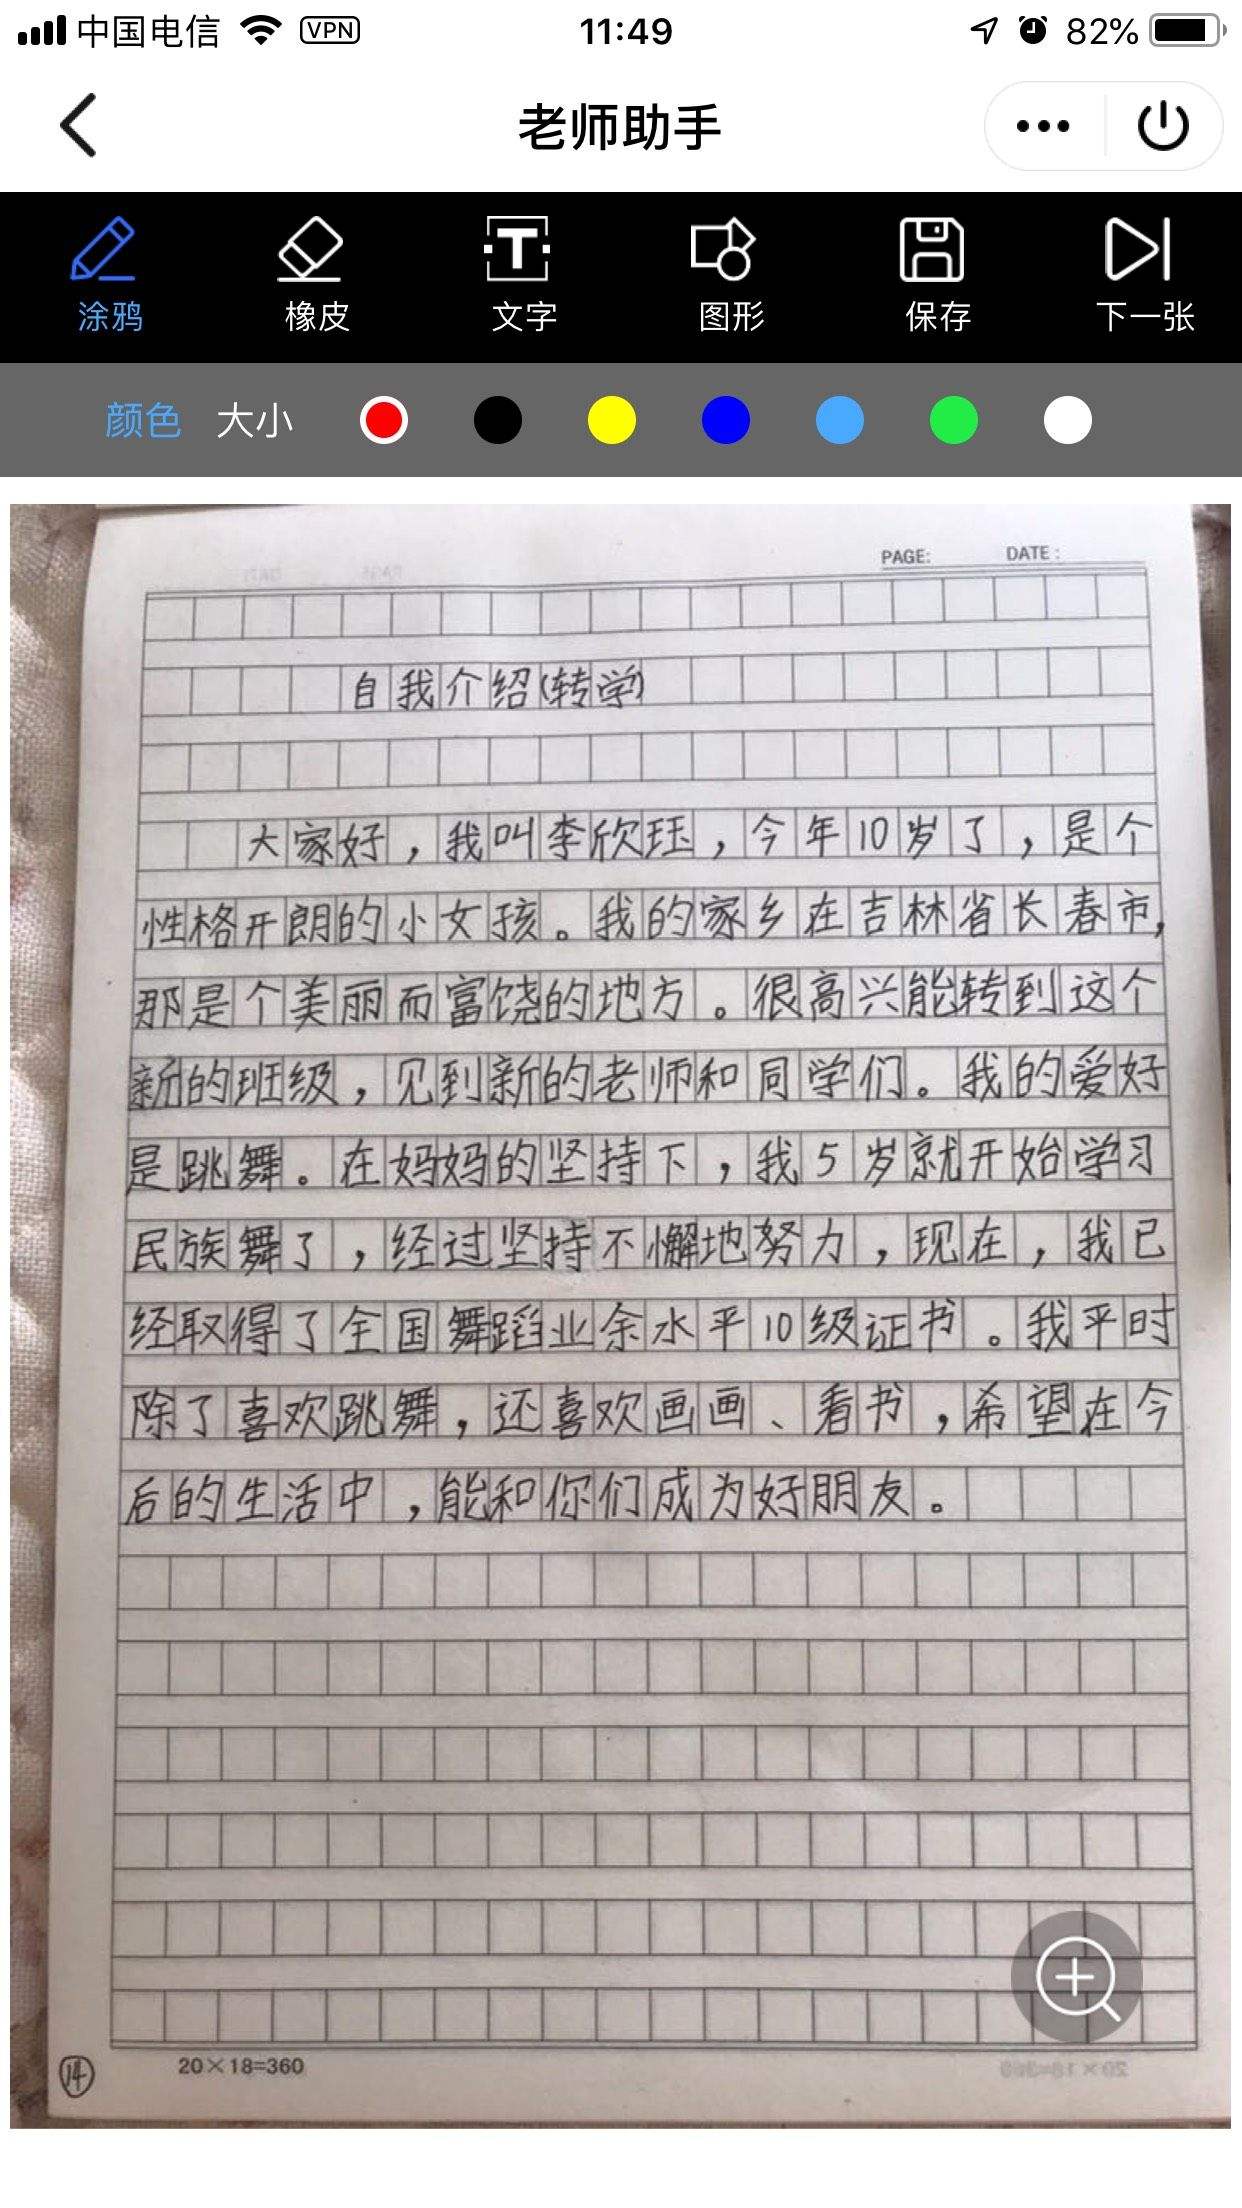 中国电信 VPN 11:49 82%
老师助手
涂鸦 橡皮 文字 图形 保存 下一张
颜色 大小
PAGE: DATE:
自我介绍(转学)
大家好，我叫李欣珏，今年10岁了，是个
性格开朗的小女孩。我的家乡在吉林省长春市，
那是个美丽而富饶的地方。很高兴能转到这个
新的班级，见到新的老师和同学们。我的爱好
是跳舞。在妈妈的坚持下，我5岁就开始学习
民族舞了，经过坚持不懈地努力，现在，我已
经取得了全国舞蹈业余水平10级证书。我平时
除了喜欢跳舞，还喜欢画画、看书，希望在今
后的生活中，能和你们成为好朋友。
14 20×18=360